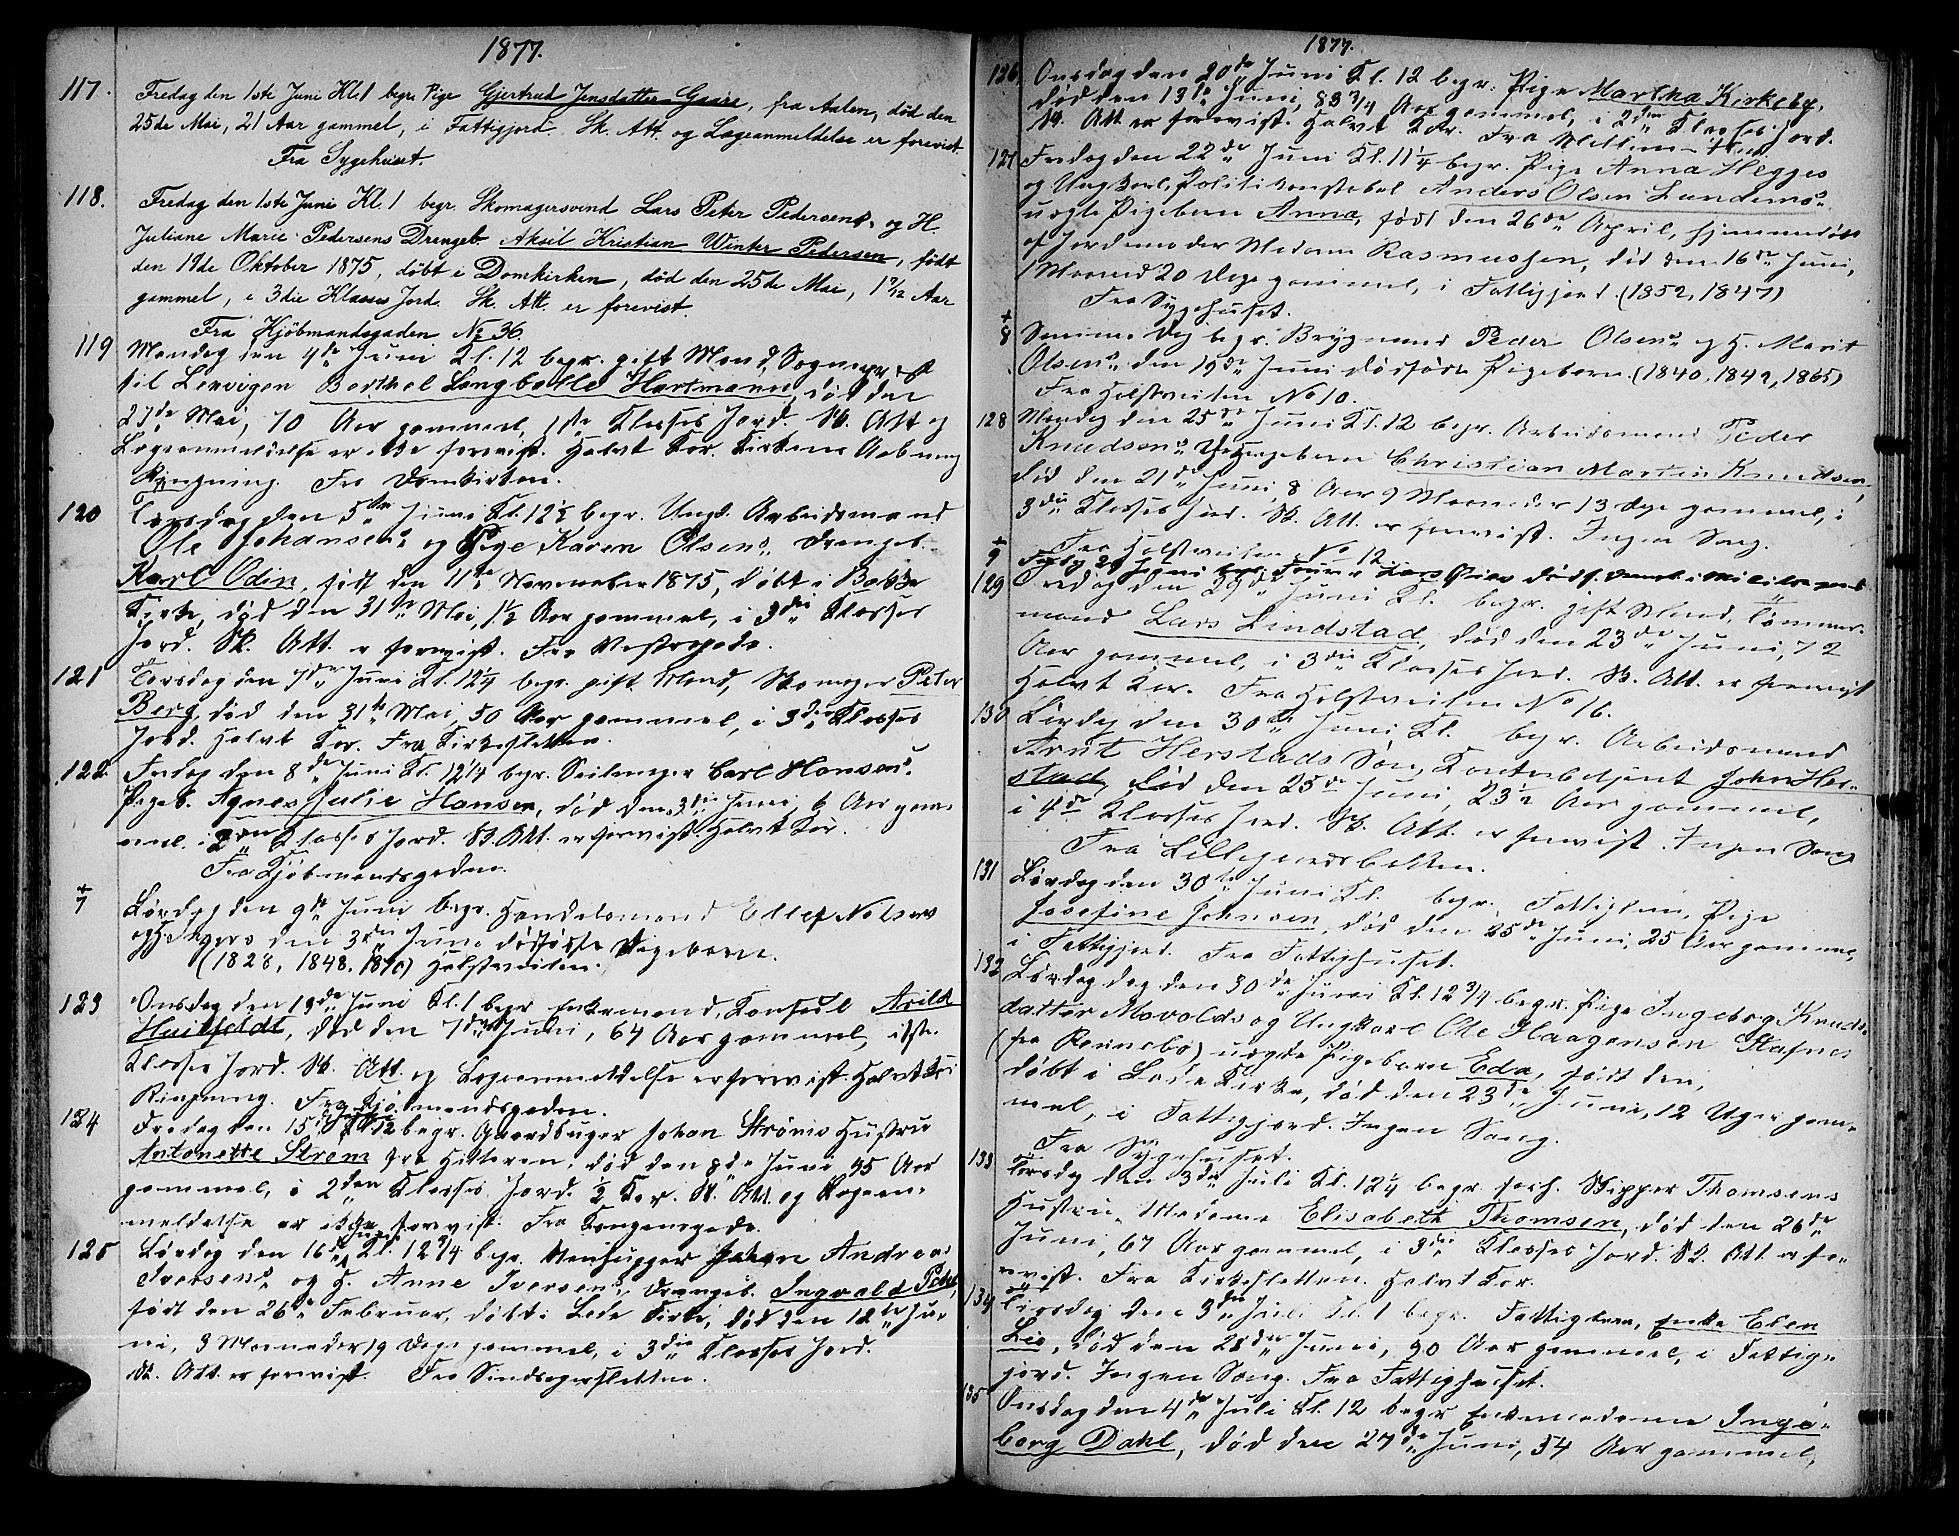 1877.
117. Fredag den 1ste Juni Kl. 1 begr. Pige Gjertrud Jensdatter Gaare, fra Aalen, død den
25de Mai, 21 Aar gammel, i Fattigjord. Sk. Att. og Lægeanmeldelse er forevist.
Fra Sygehuset.
118. Fredag den 1ste Juni Kl. 1 begr. Skomagersvend Lars Peter Pedersens og H.
Juliane Marie Pedersens Drengeb. Aksil Kristian Winter Pedersen, født
den 19de Oktober 1875, døbt i Domkirken, død den 25de Mai, 1 7/12 Aar
gammel, i 3die Klasses Jord. Sk. Att. er forevist.
Fra Kjøbmandsgaden No 36.
119 Mandag den 4de Juni Kl. 12 begr. gift Mand, Sognepræst
til Lexvigen Berthel Langbølle Hartmann, død den
27de Mai, 70 Aar gammel, 1ste Klasses Jord. Sk. Att og
Lægeanmeldelse er ikke forevist. Halvt Kor. Kirkens Aabning
Ringning. Fra Domkirken.
120 Tirsdag den 5te Juni Kl. 12½ begr. Ungk. Arbeidsmand
Ole Johansens og Pige Karen Olsens Drengeb.
Karl Odin, født den 11te November 1875, døbt i Bakke
Kirke, død den 31te Mai, 1½ Aar gammel, i 3die Klasses
Jord. Sk. Att. er forevist. Fra Vestregade.
121 Torsdag den 7de Juni Kl. 12¼ begr. gift Mand, Skomager Peter
Berg, død den 31te Mai, 50 Aar gammel, i 3die Klasses
Jord. Halvt Kor. Fra Kirkesletten.
122. Fredag den 8de Juni Kl. 12¼ begr. Seilmager Carl Hansens
Pigeb. Agnes Julie Hansen, død den 3die Juni, 6 Aar gam-
mel, i 2den Klasses Jord. Sk. Att. er forevist. Halvt Kor.
Fra Kjøbmandsgaden.
+
7 Lørdag den 9de Juni begr. Handelsmand Ellef Nelsens
og den 3die Juni dødfødte Pigebarn.
(1828, 1848, 1870) Holstveiten.
123 Onsdag den 13de Juni Kl. 1 begr. Enkemand, Konsul Arild
Huitfeldt, død den 7de Juni, 64 Aar gammel, i 1ste
Klasses Jord. Sk. Att. og Lægeanmeldelse er forevist. Halvt Kor
Ringning. Fra Kjøbmandsgaden.
124 Fredag den 15de Juni Kl. 12 begr. Gaardbruger Johan Strøms Hustru
Antonette Strøm fra Hitteren, død den 8de Juni, 45 Aar
gammel, i 2den Klasses Jord. ½ Kor. Sk. Att. og Lægean-
meldelse er ikke forevist. Fra Kongensgade.
125 Lørdag den 16de Juni Kl. 12¼ begr. Johan Andreas
Iversens og H. Anne Iversens Drengeb. Ingvald Peter,
født den 26de Februar, døbt i Lade Kirke, død den 12te Ju-
ni, 3 Maaneder 19 Dage gammel, i 3die Klasses Jord.
Sk. Att. er forevist. Fra Sindsygesletten.
1877.
126. Onsdag den 20de Juni Kl. 12 begr. Pige Martha Kirkeby,
død den 13de Juni, 83¾ Aar gammel, i 2den Klasses Jord.
Sk. Att. er forevist. Halvt Kor. Fra Mellem-Ilen.
127 Fredag den 22de Juni Kl. 11¼ begr. Pige Anna Hegges
og Ungkarl, Politikonstabel Anders Olsen Lundemos
uægte Pigebarn Anna, født den 26de April, hjemmedøbt
af Jordemoder Madam Rasmussen, død den 16de Juni,
1 Maaned 20 Dage gammel, i Fattigjord (1852, 1847)
Fra Sygehuset.
+
8 Samme Dag begr. Brygmand Peder Olsens og H. Marit
Olsens den 19de Juni dødfødte Pigebarn (1840, 1842, 1865)
Fra Holstveiten No 10.
128 Mandag den 25de Juni Kl. 12 begr. Arbeidsmand Peder
Knudsens Drengebarn Christian Martin Knudsen,
død den 21de Juni, 8 Aar 9 Maaneder 13 Dage gammel, i
3die Klasses Jord. Sk. Att. er forevist. Ingen Sang.
Fra Holstveiten No 12.
+
9
129 Fredag den 29de Juni Kl. begr. gift Mand, Tømmer-
mand Lars Lindstad, død den 23de Juni, 72
Aar gammel, i 3die Klasses Jord. Sk. Att. er forevist
Halvt Kor. Fra Holstveiten No 16.
130 Lørdag den 30te Juni Kl. begr. Arbeidsmand
Arnt Herstads Søn, Kontorbetjent John Her-
stad, død den 25de Juni, 23½ Aar gammel,
i 4de Klasses Jord. Sk. Att. er forevist. Ingen Sang
Fra Lillegaardsbakken.
131 Lørdag den 30te Juni Kl. begr. Fattiglem, Pige
Josefine Johnsen, død den 25de Juni, 25 Aar gammel,
i Fattigjord. Fra Fattighuset.
132 Lørdag dag den 30te Juni Kl. 12¾ begr. Pige Ingeborg Knuds-
datter Movolds og Ungkarl Ole Haagensen Stafnes
(fra Rennebo) uægte Pigebarn Eda, født den,
døbt i Lade Kirke, død den 23de Juni, 12 Uger gam-
mel, i Fattigjord. Ingen Sang.
Fra Sygehuset.
133 Tirsdag den 3die Juli Kl. 12¼ begr. forh. Skipper Thomsens
Hustru, Madame Elisabeth Thomsen, død den 26de
Juni, 67 Aar gammel, i 3die Klasses Jord. Sk. Att. er fo-
revist. Fra Kirkesletten. Halvt Kor.
134 Tirsdag den 3die Juli Kl. 1 begr. Fattiglem, Enke Elen
Lio, død den 28de Juni, 90 Aar gammel, i Fattig-
jord. Ingen Sang. Fra Fattighuset.
135 Onsdag den 4de Juli Kl. 12 begr. Enkemadame Inge-
borg Dahl, død den 27de Juni, 54 Aar gammel,